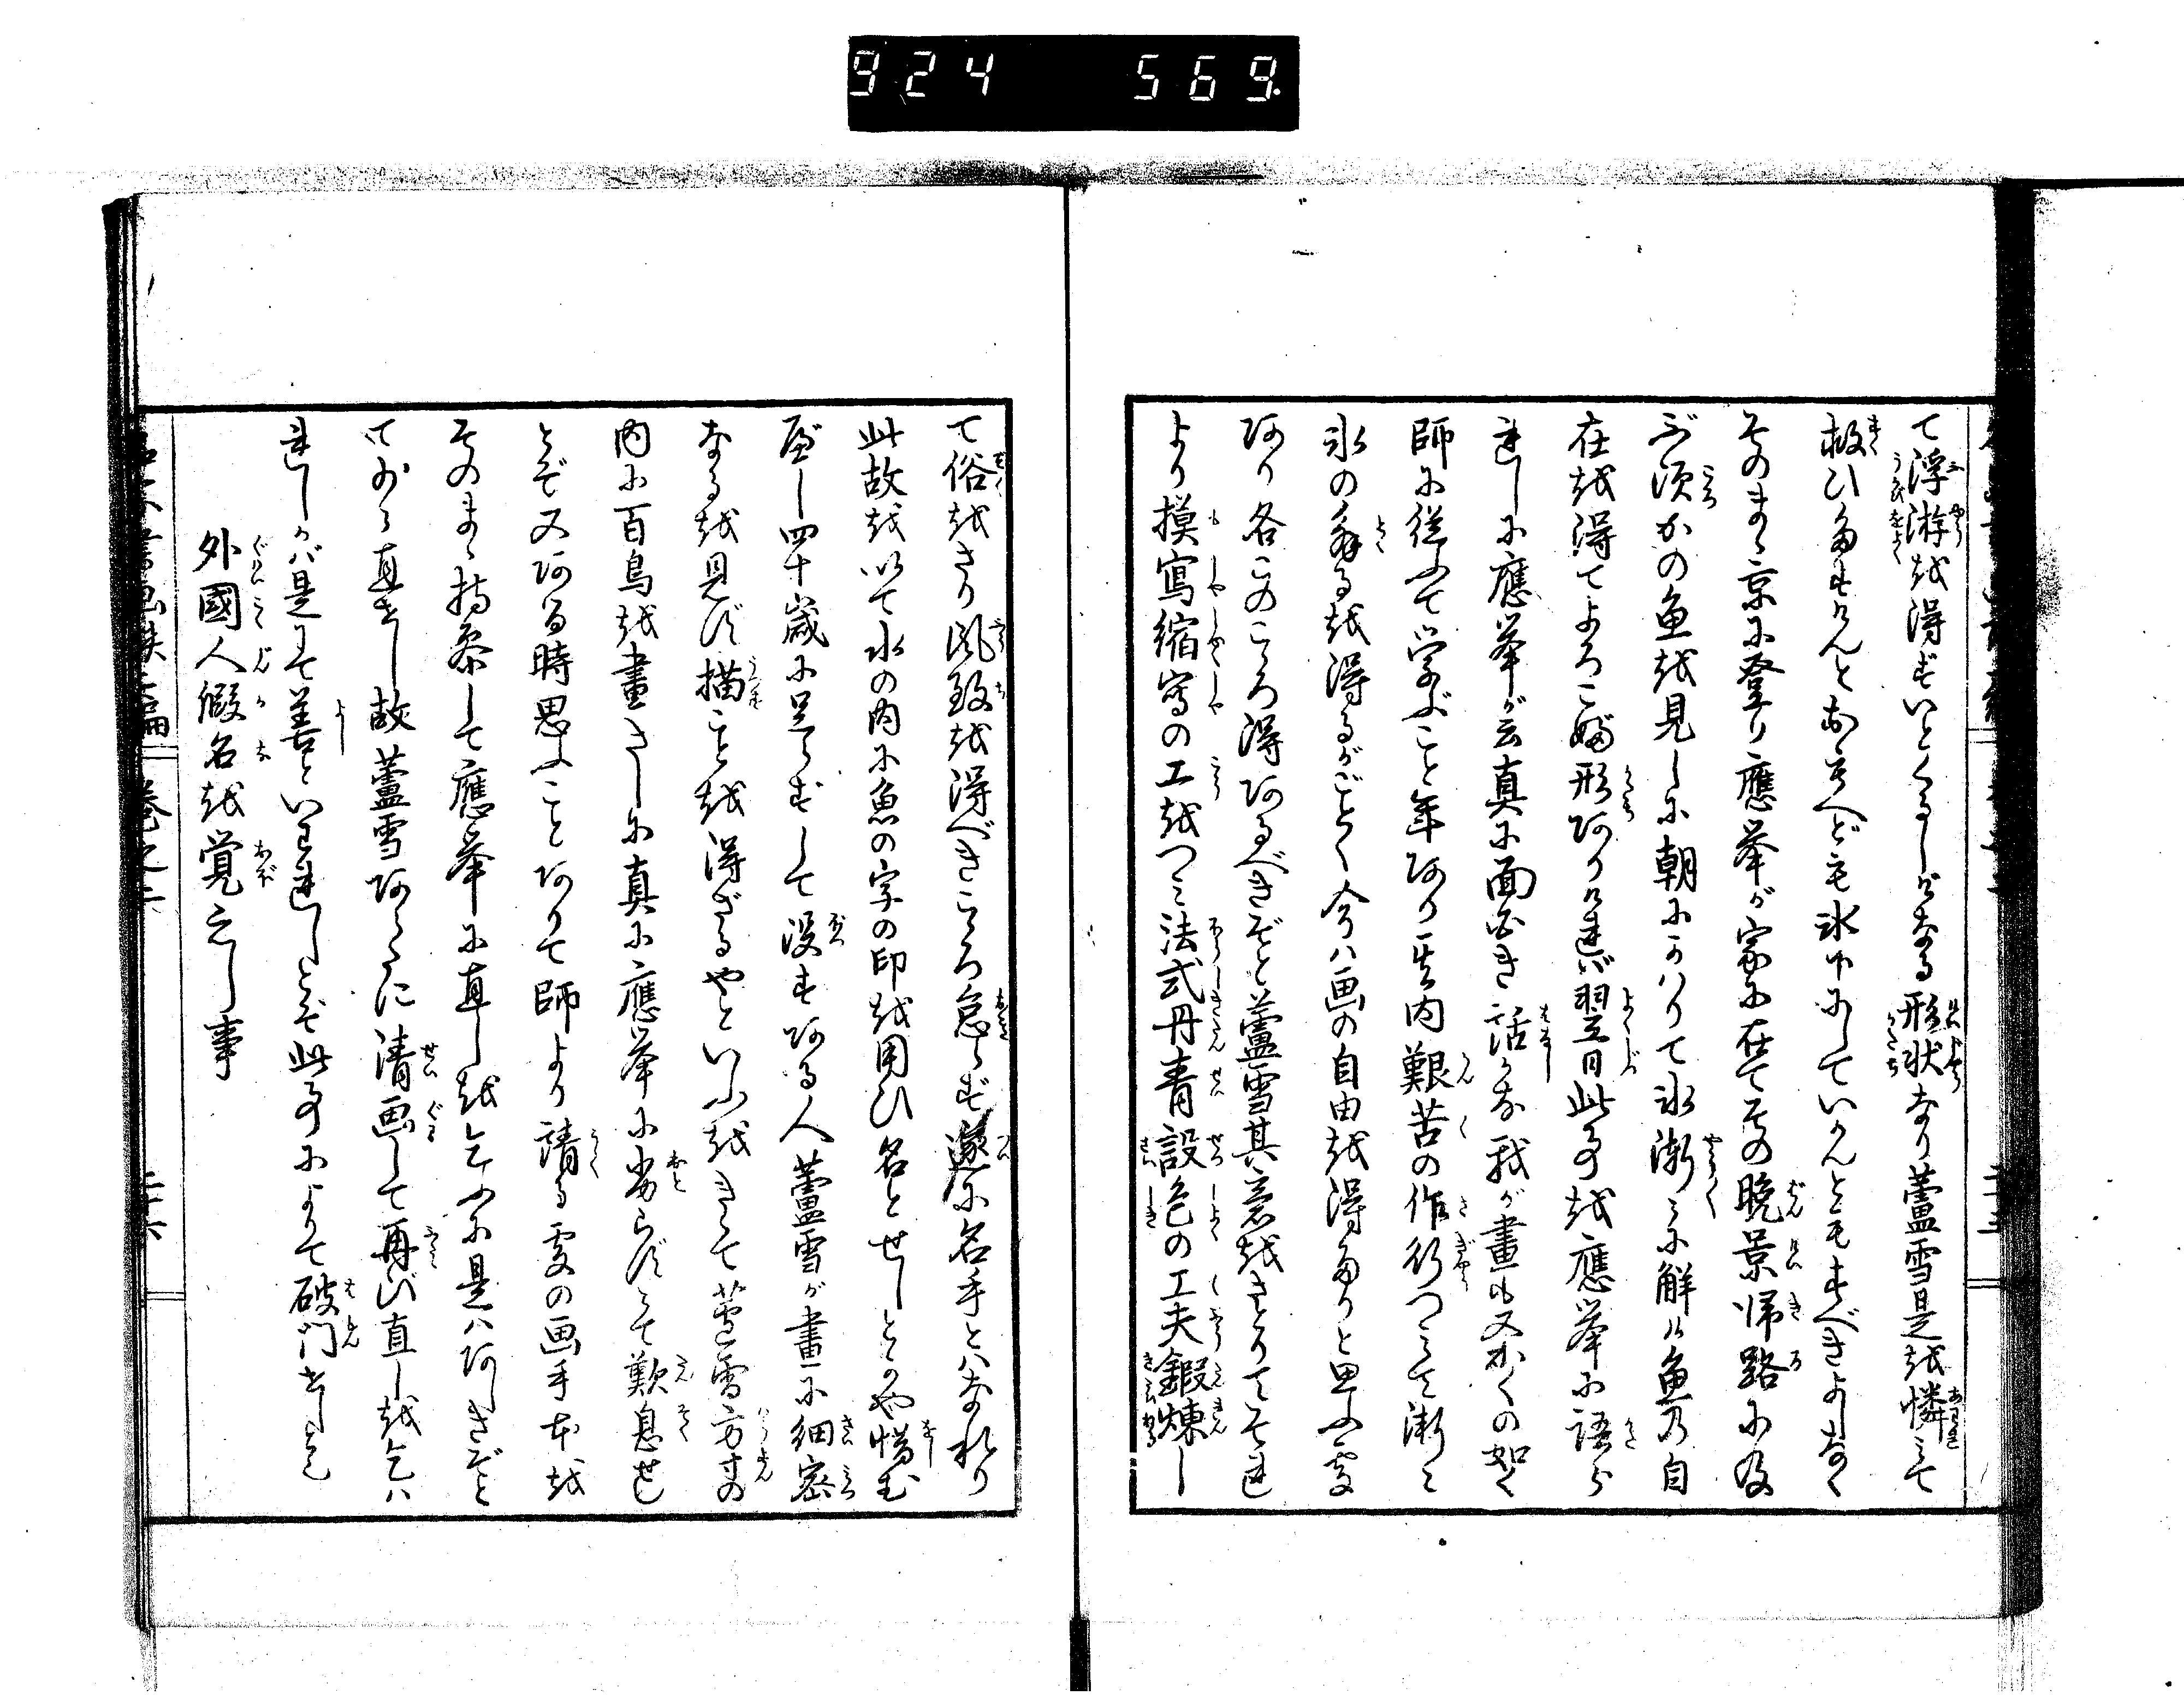 924 569
て浮游を得ずいとくるしげなる形状なり蘆雪是を憐みて
救ひ多すけんとおもへども氷中にしていかんともすべきよしなく
そのまゝ京に登り應挙が家に在てその晩景帰路に及
び頃かの魚を見しに朝にかはりて氷漸々に解け魚乃自
在を得てよろこぶ形ありければ翌日此事を應挙に語ら
れしに應挙が云真に面白き話かな我が畫も又かくの如く
師に従ふて学ぶこと年あり其内艱苦の作行つもりて漸く
氷の解るを得るがごとく今は画の自由を得たりと思ふ処
あり各このこゝろ得あるべきぞと蘆雪其意をさとりてそれ
より摸寫縮寫の工をつみ法式丹青設色の工夫鍛煉し
て俗をさり風致を得べきこゝろ怠らず遂に名手とはなれり
此故を以て氷の内に魚の字の印を用ひ名とせしとかや惜む
べし四十歳に足らずして没すある人蘆雪が畫に細密
なるを見ず描こと を得ざるやといふをきゝて蘆雪方寸の
内に百鳥を畫きしに真に應挙に劣らずとて歎息せし
とぞ又ある時思ふことありて師より請る処の画手本を
そのまゝ持参して應挙に直しを乞ふに是はあしきぞと
ておゝく直せし故蘆雪あらたに清画して再び直しを乞は
れしかば是にて善といはれしとぞ此事によりて破門せしとぞ
外國人假名を覚えし事